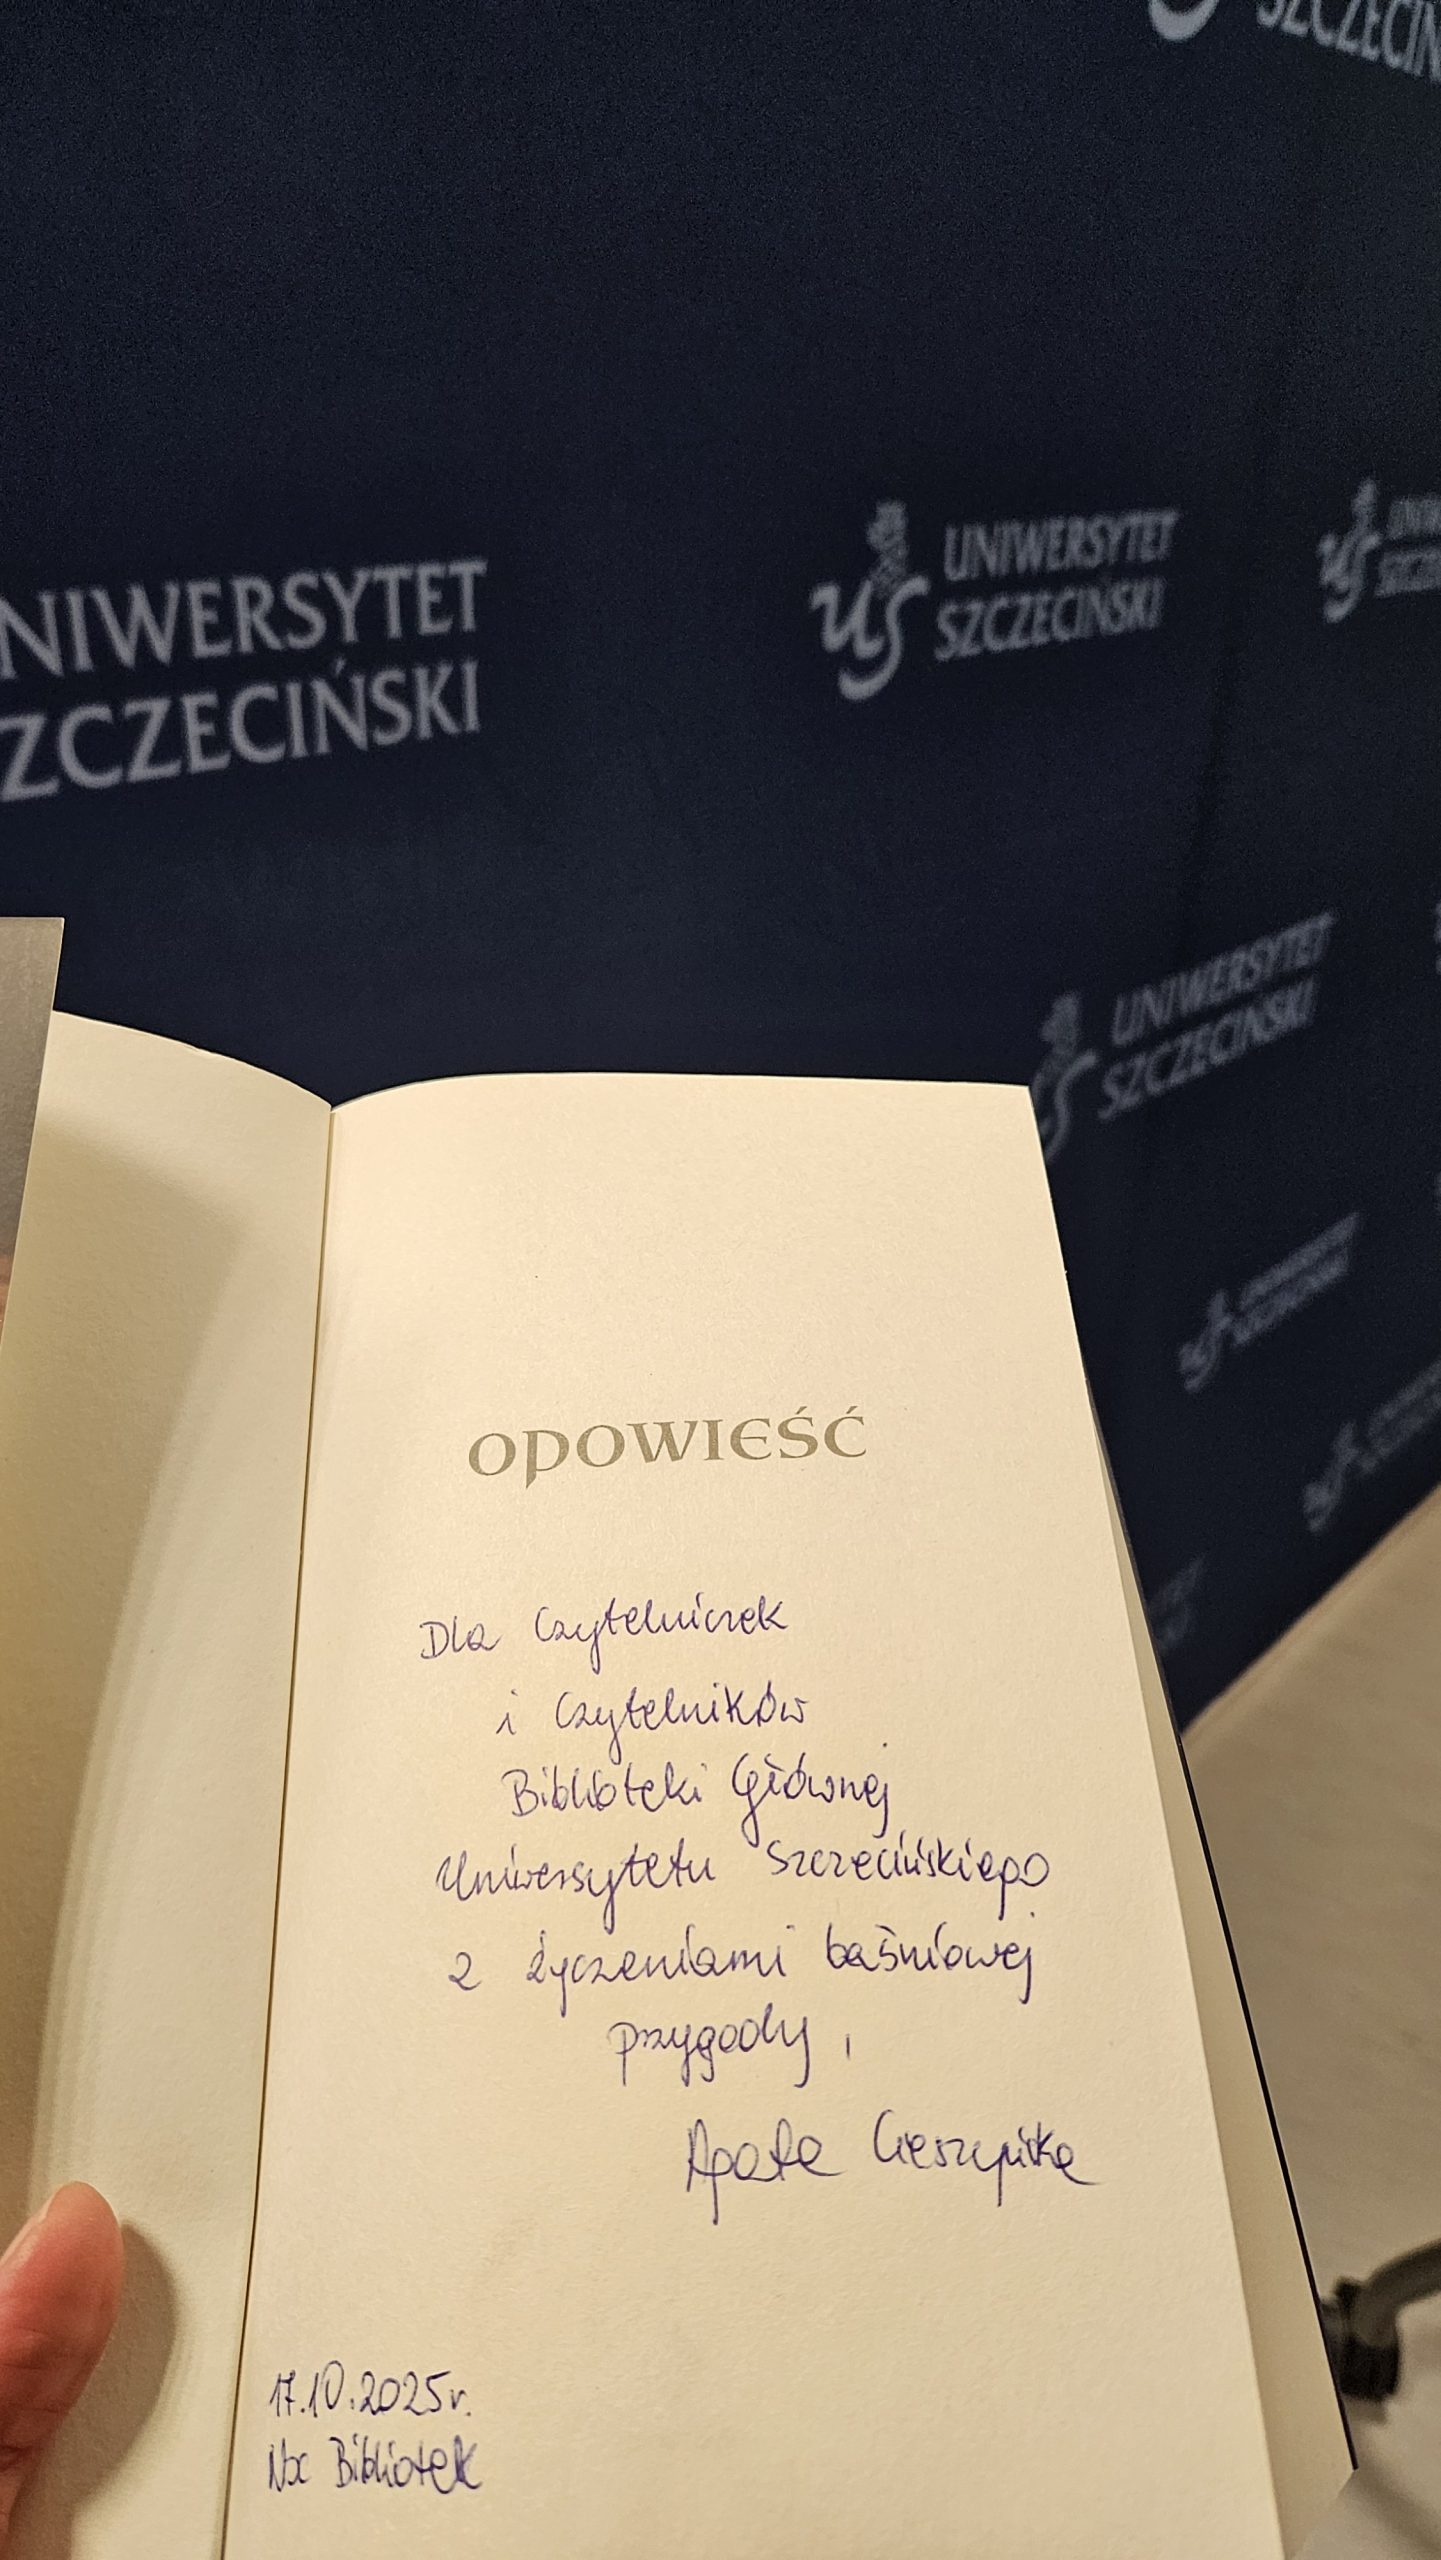 SZCZECIŃ
NIWERSYTET
ZCZECIŃSKI
UNIWERSYTET
SZCZECIŃSKI
UNIWERSYTET
SZCZECIŃSKI
OPOWIEŚĆ
Dla Czytelniczek
i Czytelników
Biblioteki Głównej
Uniwersytetu Szczecińskiego
z życzeniami baśniowej
przygody,
17.10.2025r.
Noc Bibliotek